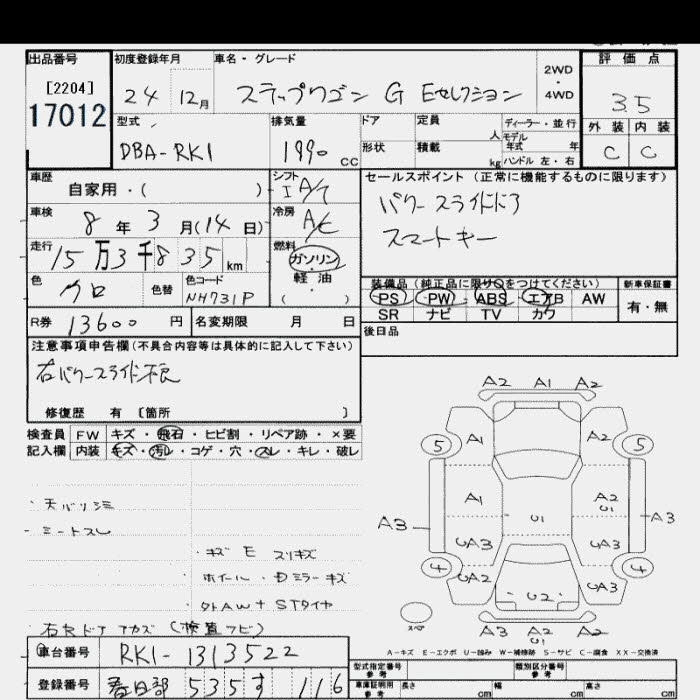 出品番号
[2204]
17012
初度登録年月
24 12月
車名・グレード
ステップワゴン G Eセレクション
2WD
・
4WD
評価点
3.5
外装 内装
C C
型式
DBA-RK1
排気量
1990 CC
ドア 定員 人
形状 積載 kg
ディーラー・並行
モデル
年式 年
ハンドル 左・右
車歴
自家用・( )
シフト
IA/T
車検
8年3月(14日)
冷房
A/C
走行
15万3千835km
燃料
ガソリン
・
軽油
( )
色
クロ
色替
色コード
NH731P
R券 13600円
名変期限 月 日
セールスポイント(正常に機能するものに限ります)
パワースライドドア
スマートキー
装備品(純正品に限り○をつけてください)
PS PW ABS エアB AW
SR ナビ TV カワ
新車保証書
有・無
後日品
注意事項申告欄(不具合内容等は具体的に記入して下さい)
右パワースライド不良
修復歴 有 〔箇所 〕
検査員
記入欄
FW キズ・飛石・ヒビ割・リペア跡・×要
内装 キズ・汚レ・コゲ・穴・スレ・キレ・破レ
・天バリシミ
・シートスレ
・キズE スリキズ
・ホイール・Dミラーキズ
・外AW+STタイヤ
A2 A1 A2
5 A1 A2 5
A1 U1 A2
U1
A3 A3
UA3 UA3
4 UA2 UA3 4
U2
スペア
A3 A2 A2
U1
A-キズ E-エクボ U-凹み W-補修跡 S-サビ C-腐食 XX-交換済
車台番号 RK1-1313522
登録番号 春日部 535 す 116
型式指定番号
参考
類別区分番号
参考
車庫証明用
参考
長さ cm 幅 cm 高さ cm